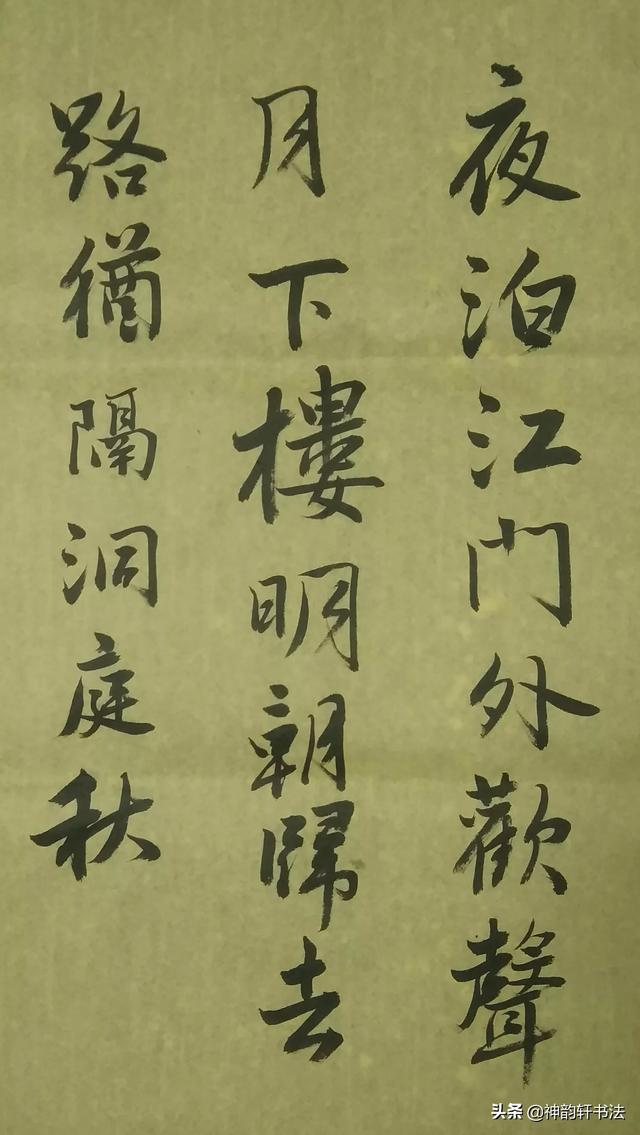 夜泊江门外歡聲
月下樓明朝歸去
路猶隔洞庭秋
头条 @神韵轩书法